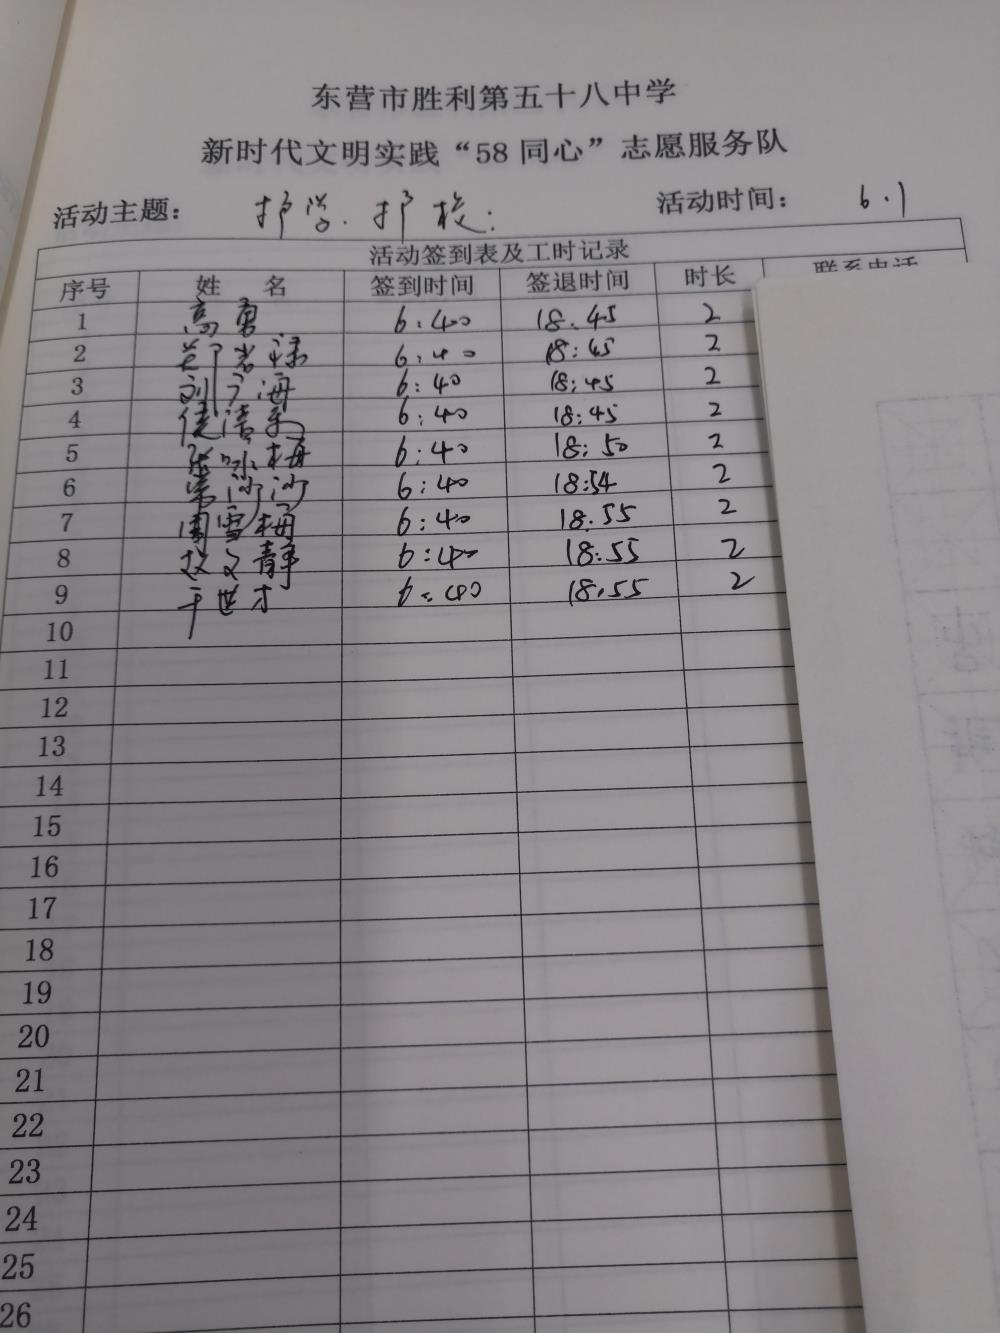 东营市胜利第五十八中学
新时代文明实践“58 同心”志愿服务队
活动主题： 护学.护校. 活动时间： 6.1
活动签到表及工时记录
序号 姓 名 签到时间 签退时间 时长 联系电话
1 高勇 6:40 18.45 2
2 6:40 18:45 2
3 刘广海 6:40 18:45 2
4 6:40 18:45 2
5 6:40 18:50 2
6 6:40 18:54 2
7 周雪梅 6:40 18.55 2
8 赵文静 6:40 18:55 2
9 于世才 6:40 18.55 2
10
11
12
13
14
15
16
17
18
19
20
21
22
23
24
25
26